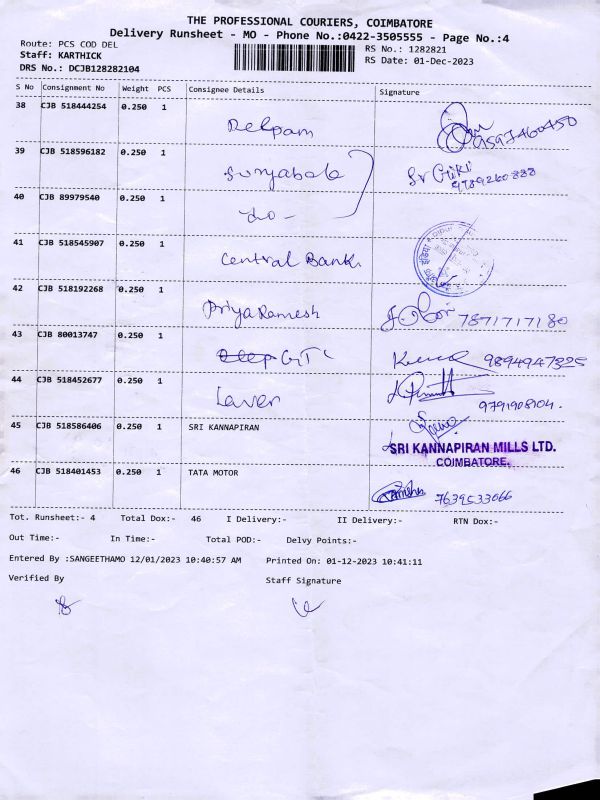 THE PROFESSIONAL COURIERS, COIMBATORE
Delivery Runsheet - MO - Phone No.:0422-3505555 - Page No.:4
Route: PCS COD DEL
RS No.: 1282821
Staff: KARTHICK
RS Date: 01-Dec-2023
DRS No.: DCJB128282104
S No Consignment No Weight PCS Consignee Details Signature
38 CJB 518444254 0.250 1
9597460450
39 CJB 518596182 0.250 1
Suryabala
9789260888
40 CJB 89979540 0.250 1
do -
41 CJB 518545907 0.250 1
Central Bank
42 CJB 518192268 0.250 1
Priya Ramesh 7871717180
43 CJB 80013747 0.250 1
9894947325
44 CJB 518452677 0.250 1
Laver
9791908104.
45 CJB 518586406 0.250 1 SRI KANNAPIRAN
SRI KANNAPIRAN MILLS LTD.
COIMBATORE.
46 CJB 518401453 0.250 1 TATA MOTOR
7639533066
Tot. Runsheet:- 4 Total Dox:- 46 I Delivery:- II Delivery:- RTN Dox:-
Out Time:- In Time:- Total POD:- Delvy Points:-
Entered By :SANGEETHAMO 12/01/2023 10:40:57 AM Printed On: 01-12-2023 10:41:11
Verified By Staff Signature